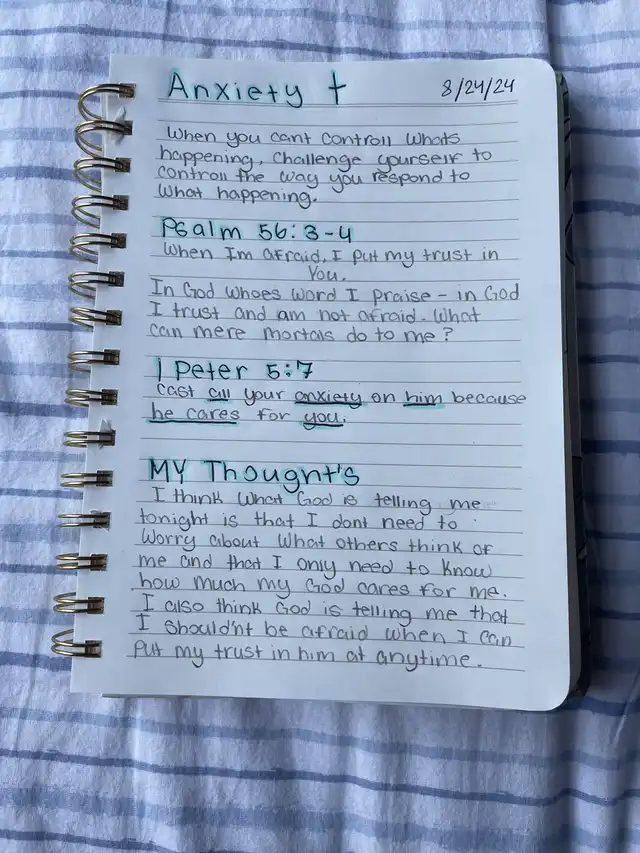 Anxiety † 8/24/24
When you cant controll whats
happening, challenge yourself to
controll the way you respond to
what happening.
Psalm 56:3-4
When Im afraid, I put my trust in
You.
In God whoes word I praise - in God
I trust and am not afraid. What
can mere mortals do to me?
1 Peter 5:7
Cast all your anxiety on him because
he cares for you.
MY Thought's
I think what God is telling me
tonight is that I dont need to
worry about what others think of
me and that I only need to know
how much my God cares for me.
I also think God is telling me that
I should'nt be afraid when I can
put my trust in him at anytime.